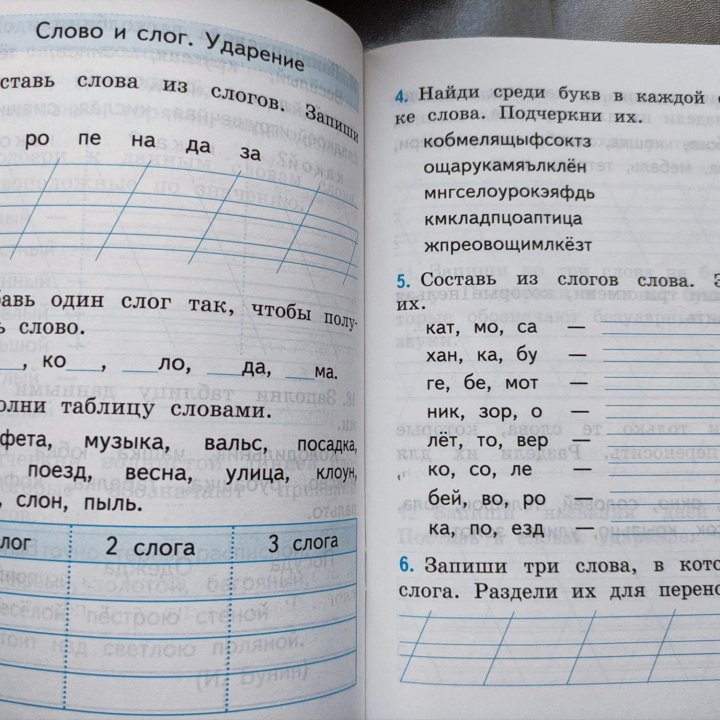 Слово и слог. Ударение
ставь слова из слогов. Запиши
ро пе на да за
авь один слог так, чтобы полу-
ь слово.
, ко , ло, да, ма.
олни таблицу словами.
фета, музыка, вальс, посадка,
поезд, весна, улица, клоун,
, слон, пыль.
лог 2 слога 3 слога
4. Найди среди букв в каждой с
ке слова. Подчеркни их.
кобмелящыфсоктз
ощарукамяълклён
мнгселоурокэяфдь
кмкладпцоаптица
жпреовощимлкёзт
5. Составь из слогов слова. З
их.
кат, мо, са —
хан, ка, бу —
ге, бе, мот —
ник, зор, о —
лёт, то, вер —
ко, со, ле —
бей, во, ро —
ка, по, езд —
6. Запиши три слова, в кото
слога. Раздели их для перено